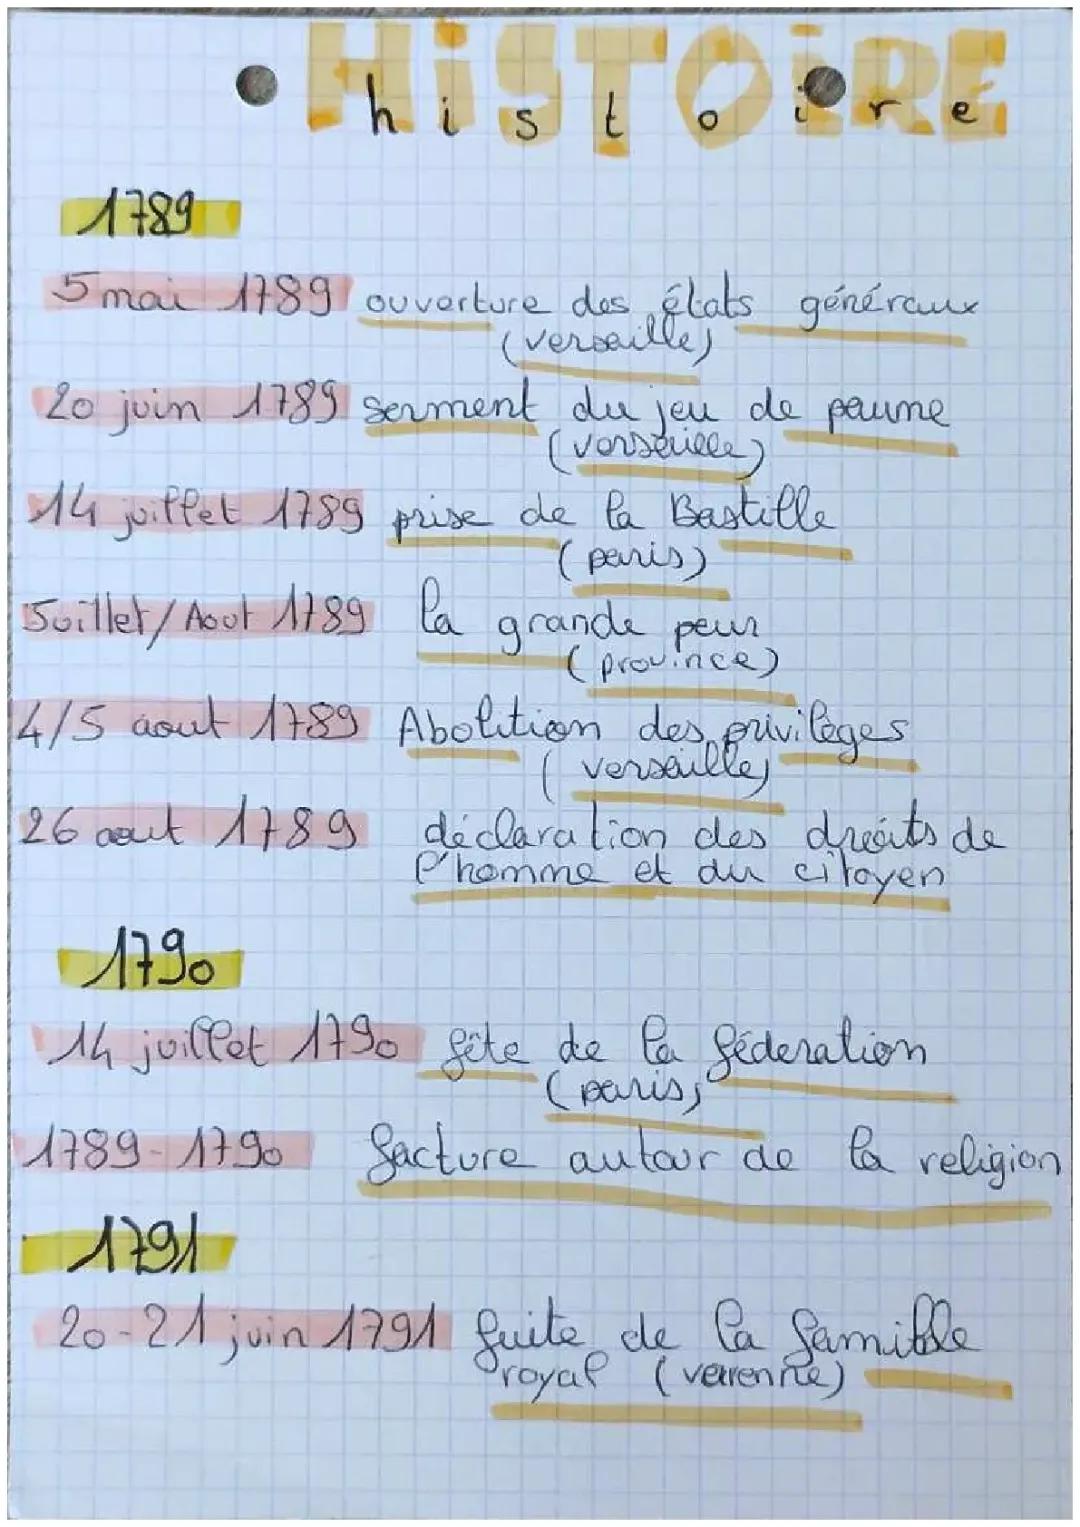 HiSTOiRE
histoire
1789
5 mai 1789 ouverture des états généraux
(verseille)
20 juin 1789 serment du jeu de paume
(verseille)
14 juillet 1789 prise de la Bastille
(paris)
Juillet/Aout 1789 la grande peur
(province)
4/5 aout 1789 Abolition des privilèges
(verseille)
26 aout 1789 déclaration des droits de
l'homme et du citoyen
1790
14 juillet 1790 fête de la féderation
(paris)
1789-1790 facture autour de la religion
1791
20-21 juin 1791 fuite de la famille
royal (varenne)